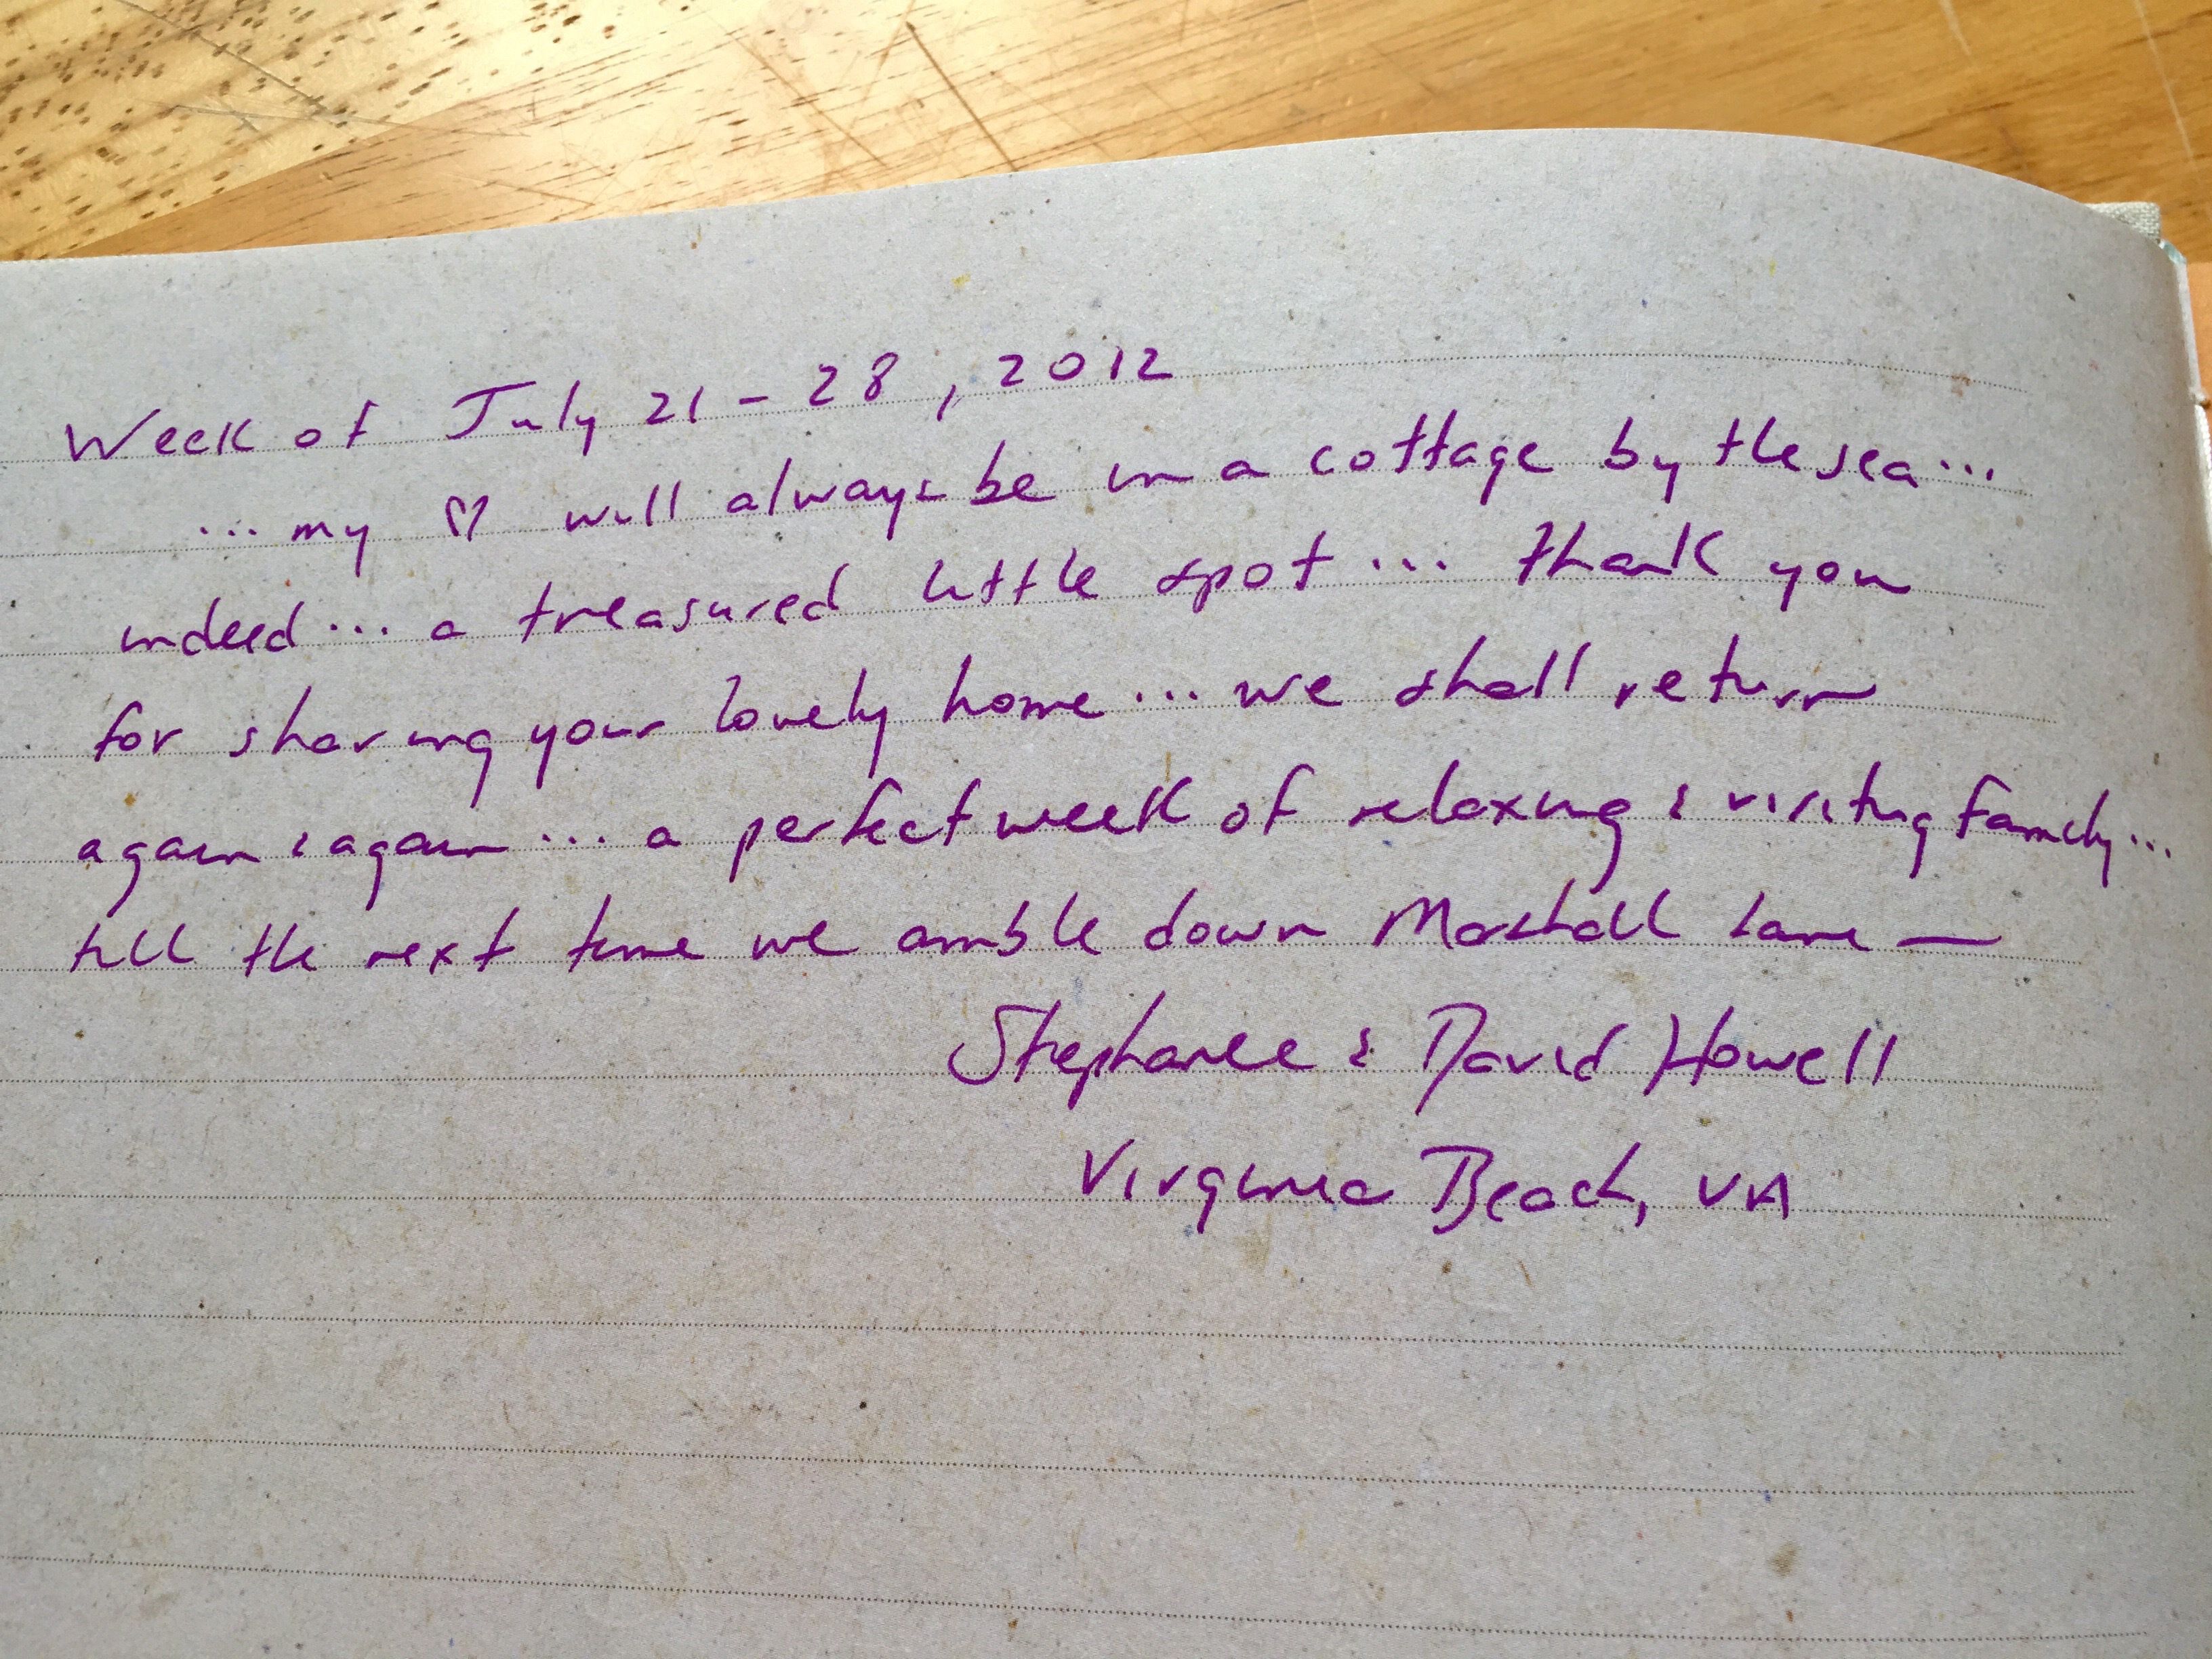 Week of July 21 - 28, 2012
... my ♡ will always be in a cottage by the sea...
indeed... a treasured little spot... thank you
for sharing your lovely home... we shall return
again & again... a perfect week of relaxing & visiting family...
till the next time we amble down Marshall Lane —
Stephanie & David Howell
Virginia Beach, VA